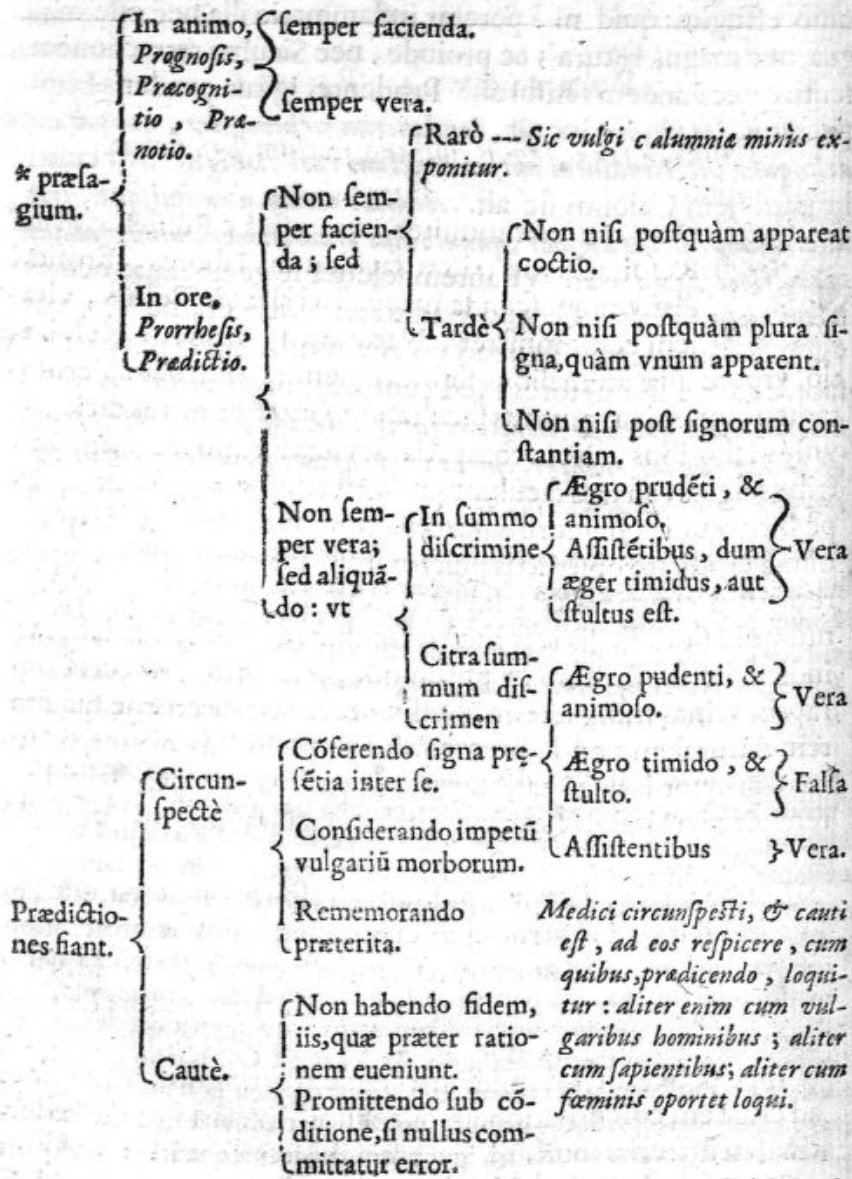 In animo,
Prognoſis,
Præcogni-
tio, Præ-
notio.
ſemper facienda.
ſemper vera.
* præſa-
gium.
In ore.
Prorrheſis,
Prædictio.
Non ſem-
per facien-
da; ſed
Rarò --- Sic vulgi calumniæ minùs ex-
ponitur.
Tardè
Non niſi poſtquàm appareat
coctio.
Non niſi poſtquàm plura ſi-
gna, quàm vnum apparent.
Non niſi poſt ſignorum con-
ſtantiam.
Non ſem-
per vera;
ſed aliquã-
do: vt
In ſummo
diſcrimine
Ægro prudẽti, &
animoſo.
Aſſiſtẽtibus, dum
æger timidus, aut
ſtultus eſt.
Vera
Citra ſum-
mum diſ-
crimen
Ægro pudenti, &
animoſo.
Vera
Ægro timido, &
ſtulto.
Falſa
Aſſiſtentibus
Vera.
Prædictio-
nes fiant.
Circun-
ſpectè
Cõferendo ſigna pre-
ſẽtia inter ſe.
Conſiderando impetũ
vulgariũ morborum.
Rememorando
præterita.
Cautè.
Non habendo fidem,
iis, quæ præter ratio-
nem eueniunt.
Promittendo ſub cõ-
ditione, ſi nullus com-
mittatur error.
Medici circunſpeſti, & cauti
eſt, ad eos reſpicere, cum
quibus, prædicendo, loqui-
tur: aliter enim cum vul-
garibus hominibus; aliter
cum ſapientibus; aliter cum
fœminis oportet loqui.